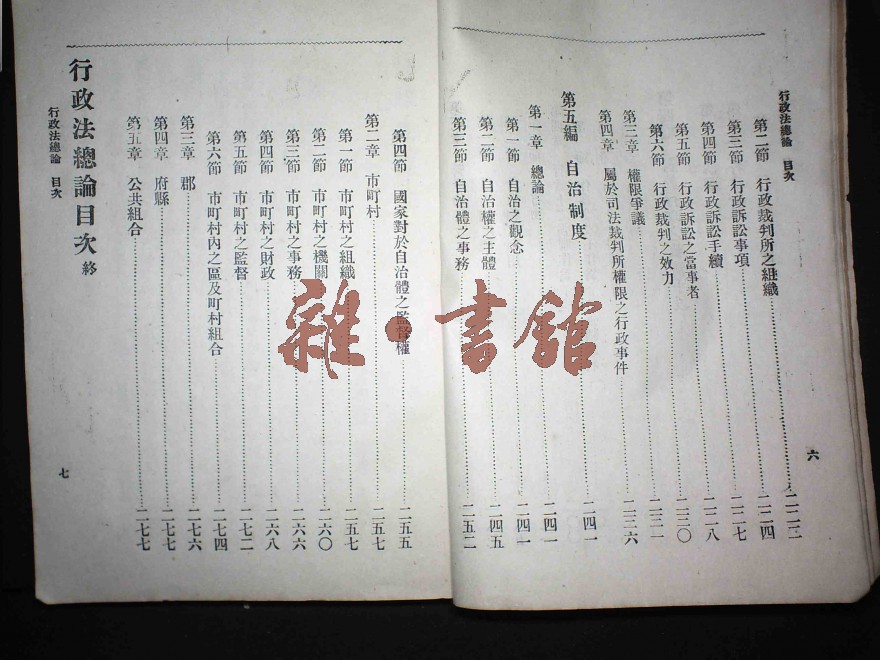 行政法總論 目次
第二節 行政裁判所之組織……二二三
第三節 行政訴訟事項……二二四
第四節 行政訴訟手續……二二七
第五節 行政訴訟之當事者……二二八
第六節 行政裁判之效力……二三〇
第三章 權限爭議……二三一
第四章 屬於司法裁判所權限之行政事件……二三六
第五編 自治制度……二四一
第一章 總論……二四一
第一節 自治之觀念……二四一
第二節 自治權之主體……二四五
第三節 自治體之事務……二五二
六
第四節 國家對於自治體之監督權……二五五
第二章 市町村……二五七
第一節 市町村之組織……二五七
第二節 市町村之機關……二六〇
第三節 市町村之事務……二六六
第四節 市町村之財政……二六八
第五節 市町村之監督……二七二
第六節 市町村內之區及町村組合……二七四
第三章 郡……二七六
第四章 府縣……二七七
第五章 公共組合……二七七
行政法總論目次 終
行政法總論 目次
七
雜·書館